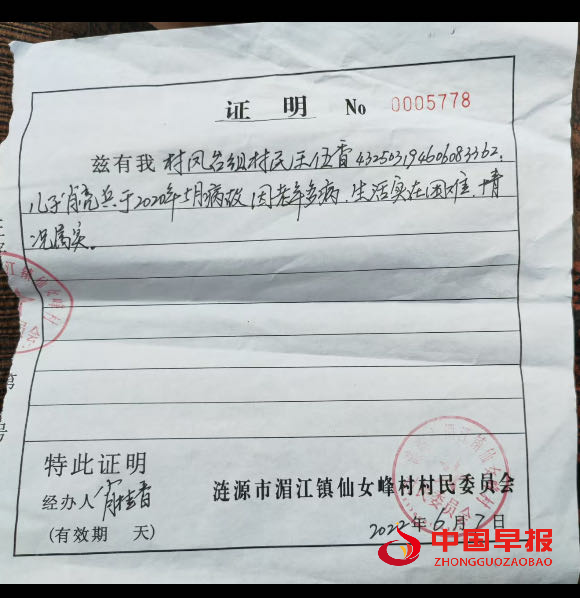 证明 No 0005778
兹有我村凤台组村民王伍香432503194606083362,
儿子肖亮兵于2020年5月病故因老年多病.生活实在困难.情
况属实。
特此证明
经办人
(有效期 天)
涟源市湄江镇仙女峰村村民委员会
2022年6月7日
中国早报
ZHONGGUOZAOBAO